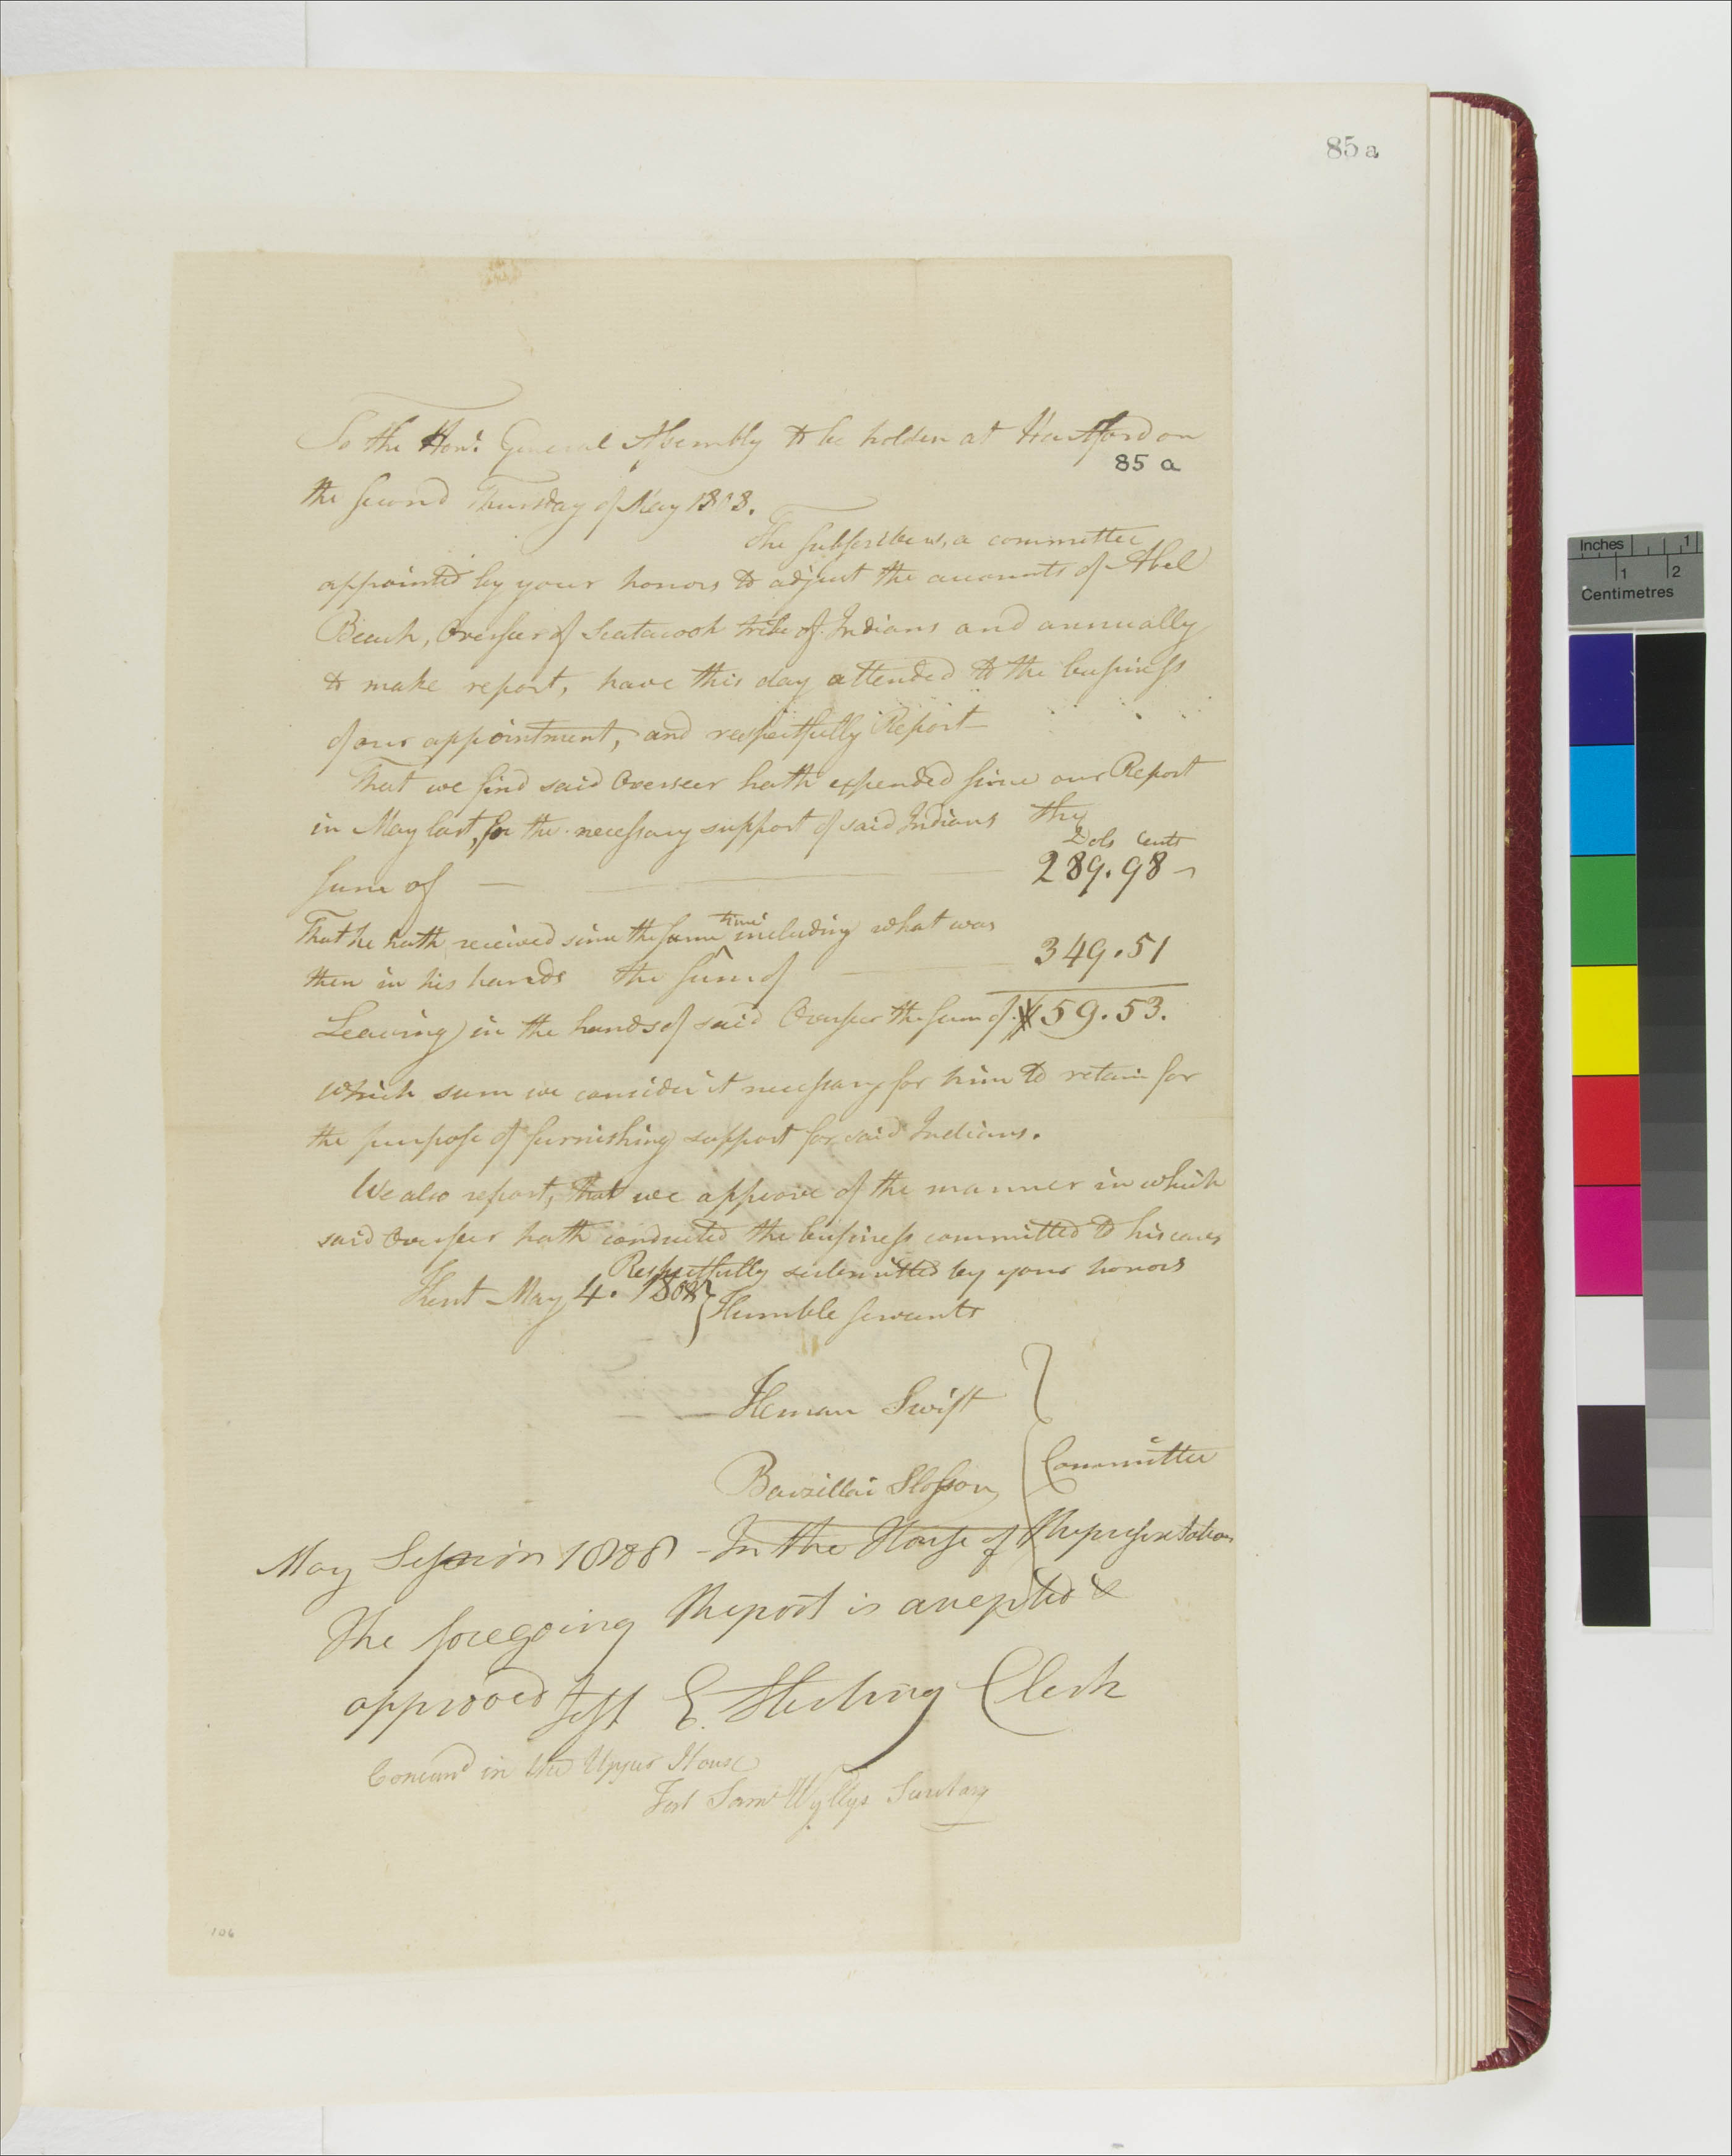 85 a
To the Hon.l General Assembly to be holden at Hartford on
85 a
the second Thursday of May 1808.
The subscribers, a committee
appointed by your honors to adjust the accounts of Abel
Beach, Overseer of Scatacook tribe of Indians and annually
to make report, have this day attended to the business
of our appointment, and respectfully Report
That we find said Overseer hath expended since our Report
in May last, for the necessary support of said Indians the
Dols Cents
sum of — 289.98
That he hath received since the same time including what was
then in his hands the sum of — 349.51
Leaving in the hands of said Overseer the sum of $59.53.
Which sum we consider it necessary for him to retain for
the purpose of furnishing support for said Indians.
We also report, that we approve of the manner in which
said Overseer hath conducted the business committed to his care,
Respectfully submitted by your honors
Kent May 4. 1808 } Humble servants
Heman Swift
Barzillai Slosson } Committee
May Session 1808 - In the House of Representatives
The foregoing Report is accepted &
approved Test E. Sterling Clerk
Concurd in the Upper House
Test Saml Wyllys Secretary
106